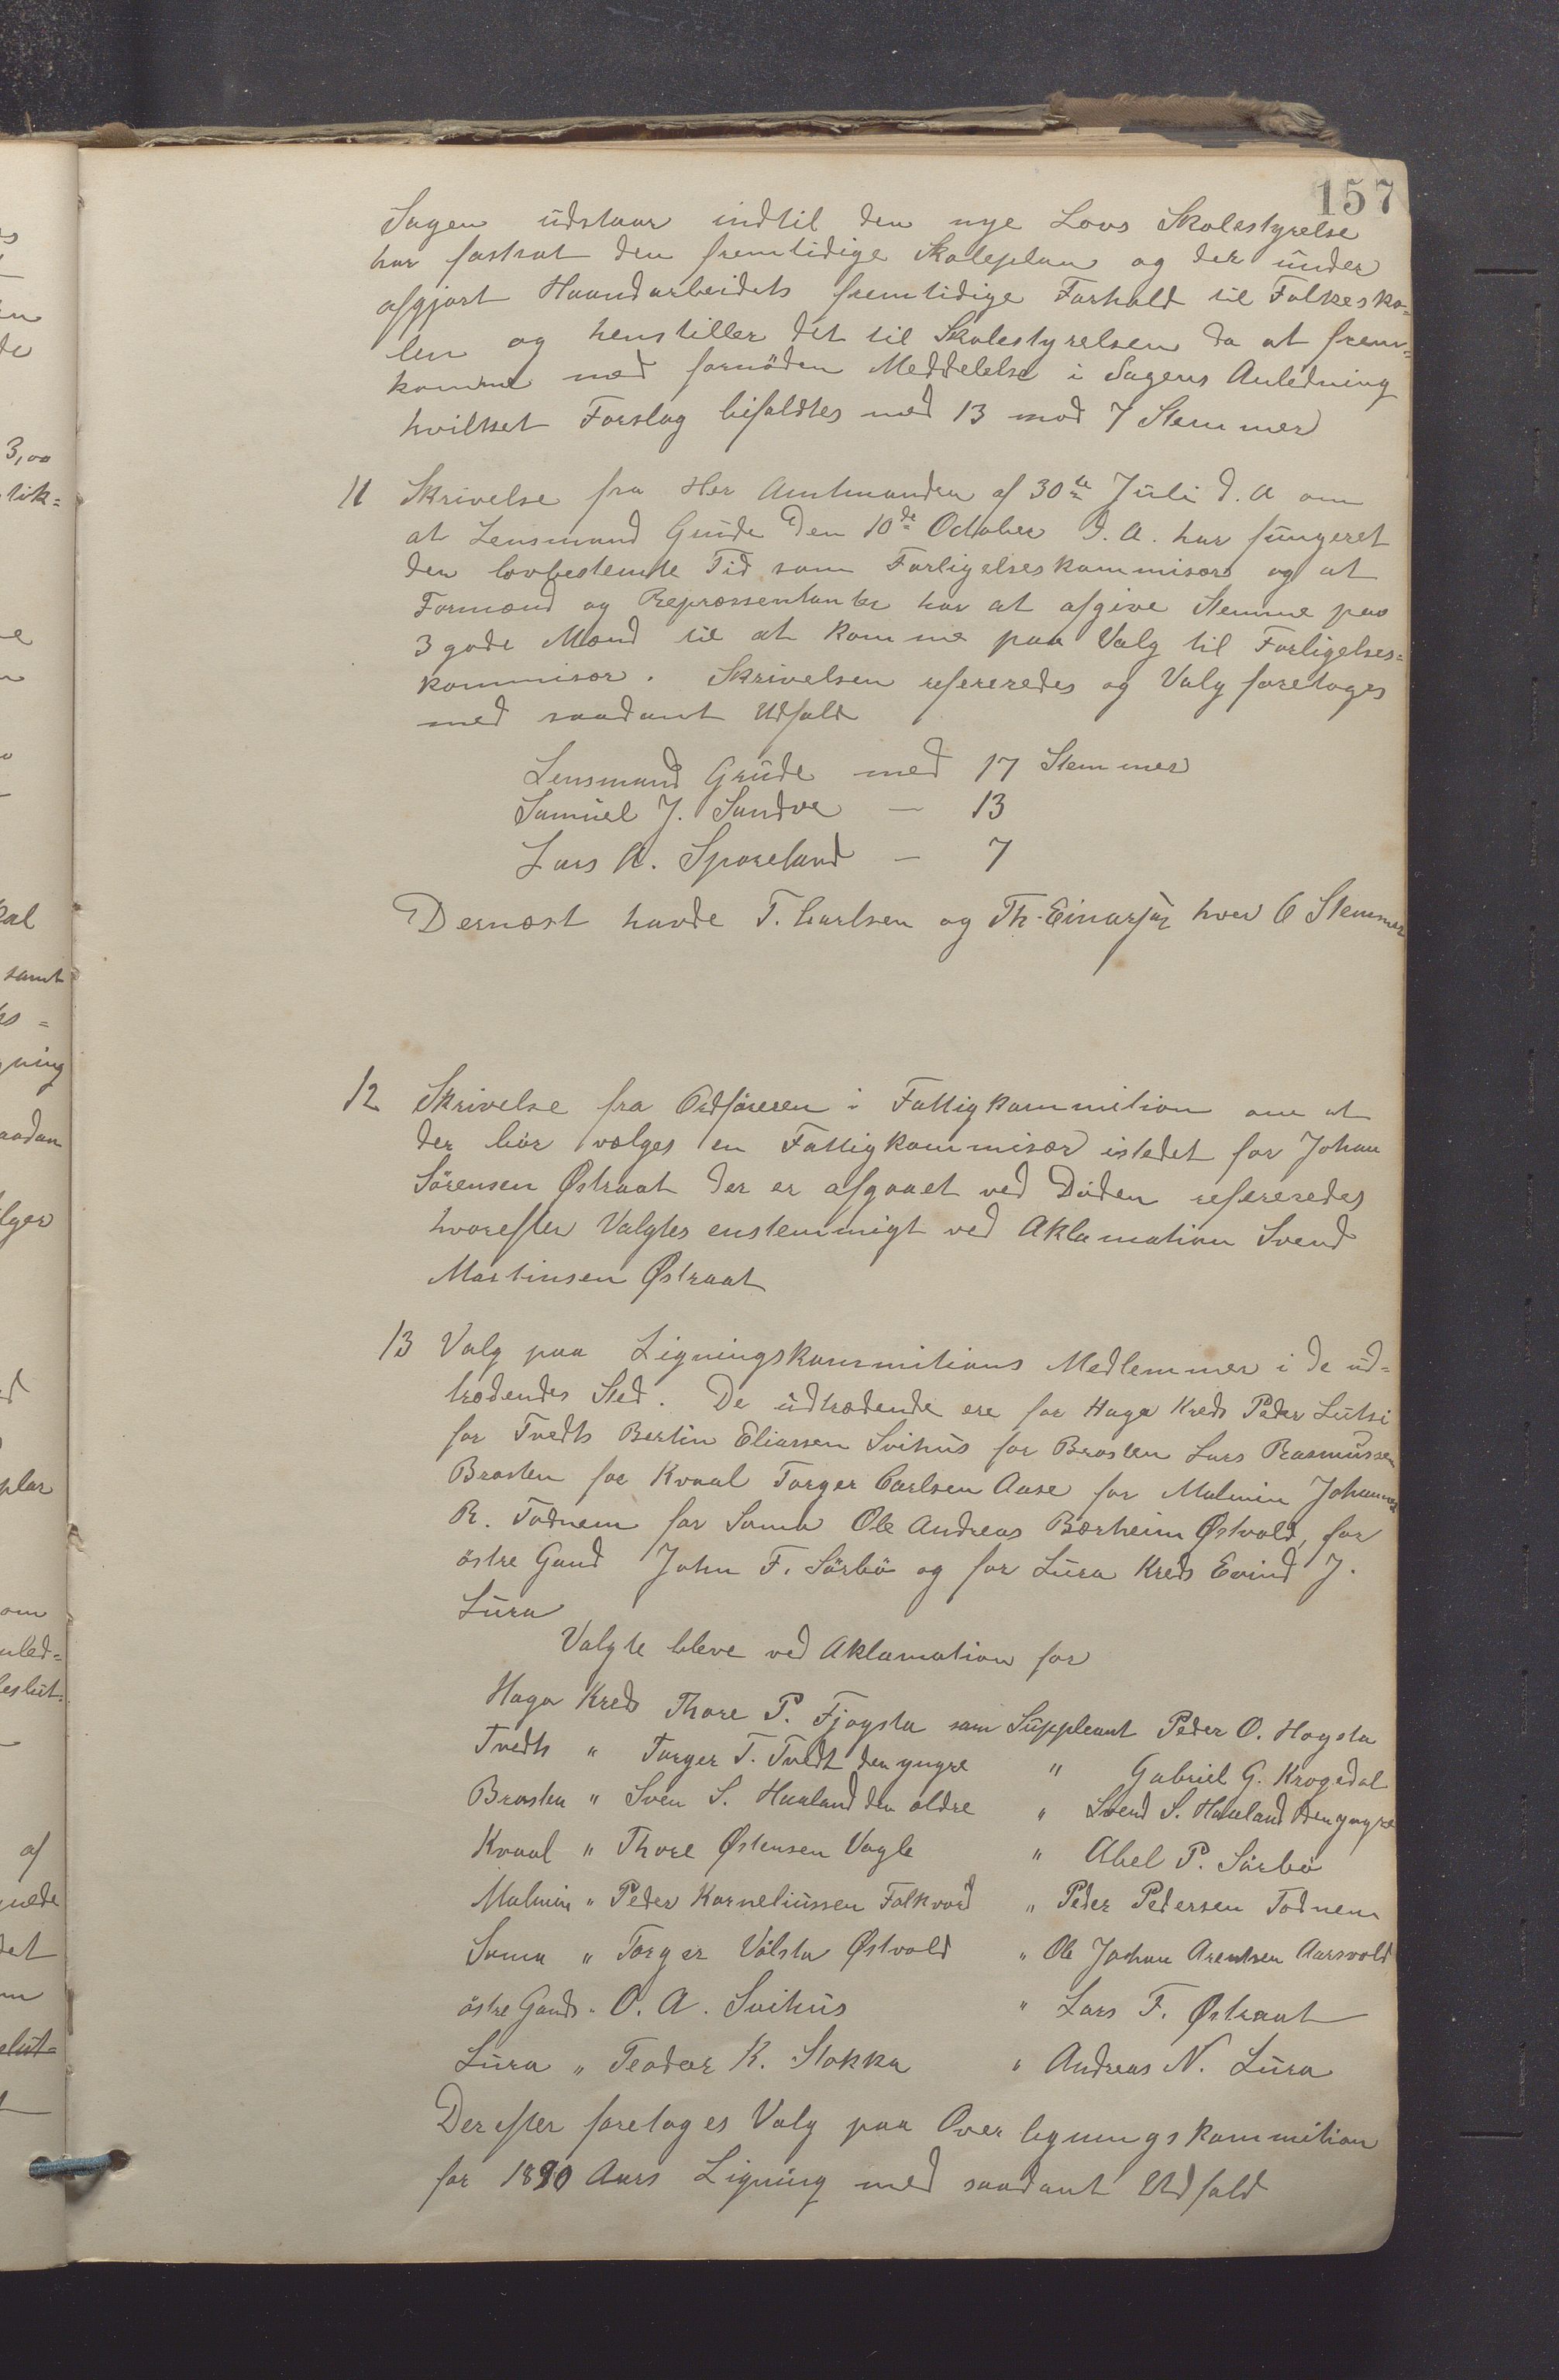 157
Sagen udstaar indtil den nye Lovs Skolestyrelse
har fastsat den fremtidige Skoleplan og der under
afgjort Haandarbeidets fremtidige Forhold til Folkesko=
len og henstiller det til Skolestyrelsen da at frem=
komme med fornöden Meddelelse i Sagens Anledning
hvilket Forslag bifaldtes med 13 mod 7 Stemmer
11 Skrivelse fra Her Amtmanden af 30te Juli d.A om
at Lensmand Grude den 10de October d.A. har fungeret
den lovbestemte Tid som Forligelseskommisær og at
Formænd og Repræssentanter har at afgive Stemme paa
3 gode Mænd til at komme paa Valg til Forligelses=
kommisær. Skrivelsen refereredes og Valg foretoges
med saadant Udfald
Lensmand Grude med 17 Stemmer
Samuel J. Sandve — 13
Lars A. Sporeland — 7
Dernæst havde T. Carlsen og Th. Einarsen hver 6 Stemmer
12 Skrivelse fra Ordföreren i Fattigkommition om at
der bör vælges en Fattigkommisær istedet for Johan
Sörensen Østraat der er afgaaet ved Döden refereredes
hvorefter Valgtes enstemmigt ved Aklamation Svend
Martinsen Østraat
13 Valg paa Ligningskommitions Medlemmer i de ud=
trædendes Sted. De udtrædende ere for Høge Kreds Peder Lutsi
for Tvedts Bertin Eliassen Svihus for Brasten Lars Rasmussen
Brasten for Kvaal Torger Carlsen Aase for Malmin Johannes
R. Todnem for Soma Ole Andreas Bærheim Østvold, for
östre Gand John F. Sörbö og for Lura Kreds Evind J.
Lura
Valgte bleve ved Aklamation for
Høga Kreds Thore P. Fjogsta som Suppleant Peder O. Hogsta
Tvedts " Torger T. Tvedt den yngre " Gabriel G. Krogedal
Brasten " Sven S. Haaland den ældre " Svend S. Haaland den yngre
Kvaal " Thore Østensen Vagle " Abel P. Sörbö
Malmin " Peder Korneliussen Folkvord " Peder Pedersen Todnem
Soma " Torger Vølsta Østvold " Ole Johan Arentsen Aarsvold
östre Gands " O. A. Svihus " Lars F. Østraat
Lura " Teodor K. Stokka " Andreas N. Lura
Derefter foretoges Valg paa Over ligningskommition
for 1890 Aars Ligning med saadant Udfald